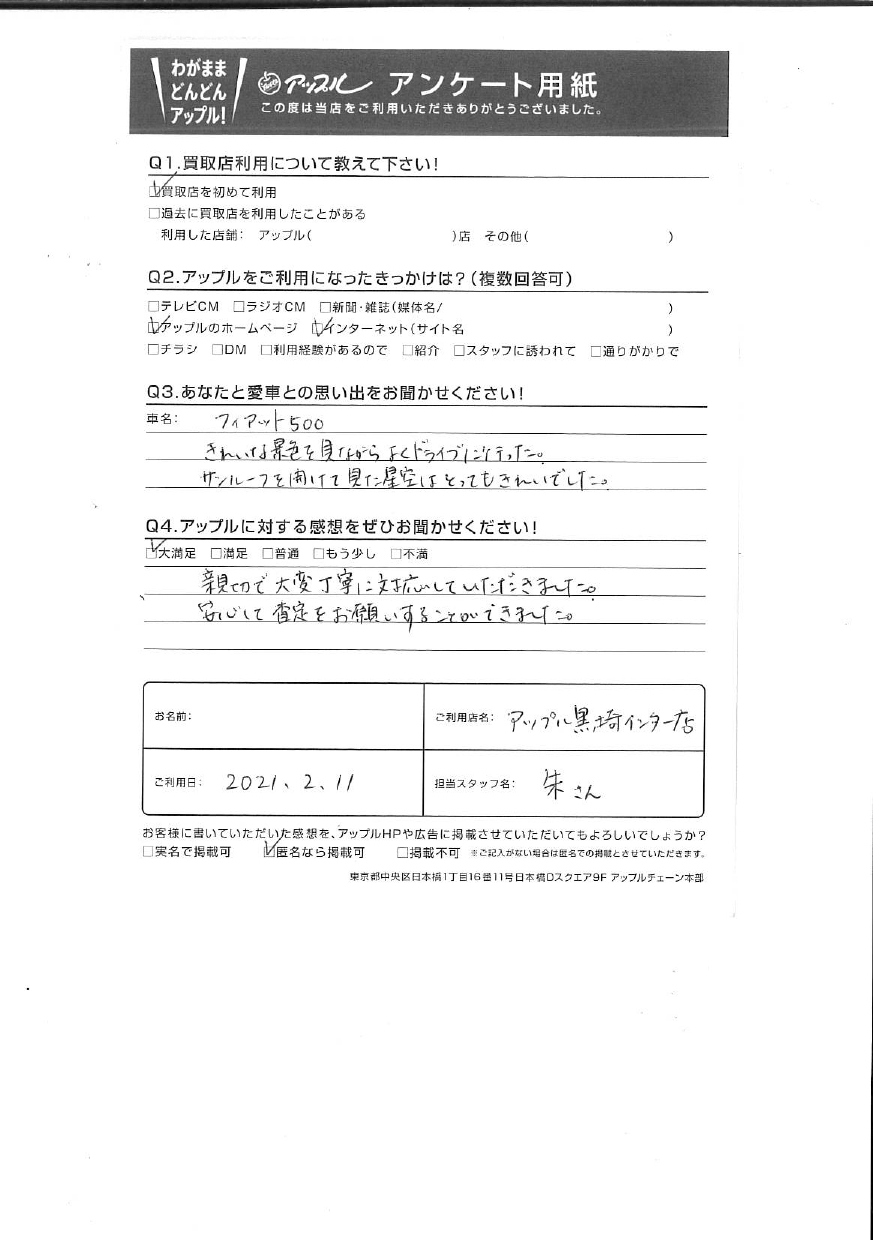 わがまま
どんどん
アップル!
アップル アンケート用紙
この度は当店をご利用いただきありがとうございました。
Q1.買取店利用について教えて下さい!
☑買取店を初めて利用
□過去に買取店を利用したことがある
利用した店舗: アップル( )店 その他( )
Q2.アップルをご利用になったきっかけは?(複数回答可)
□テレビCM □ラジオCM □新聞・雑誌(媒体名/ )
☑アップルのホームページ ☑インターネット(サイト名 )
□チラシ □DM □利用経験があるので □紹介 □スタッフに誘われて □通りがかりで
Q3.あなたと愛車との思い出をお聞かせください!
車名: フィアット500
きれいな景色を見ながらよくドライブに行った。
サンルーフを開けて見た星空はとってもきれいでした。
Q4.アップルに対する感想をぜひお聞かせください!
☑大満足 □満足 □普通 □もう少し □不満
親切で大変丁寧に対応していただきました。
安心して査定をお願いすることができました。
お名前:
ご利用店名: アップル黒埼インター店
ご利用日: 2021、2、11
担当スタッフ名: 朱さん
お客様に書いていただいた感想を、アップルHPや広告に掲載させていただいてもよろしいでしょうか?
□実名で掲載可 ☑匿名なら掲載可 □掲載不可 ※ご記入がない場合は匿名での掲載とさせていただきます。
東京都中央区日本橋1丁目16番11号日本橋Dスクエア9F アップルチェーン本部